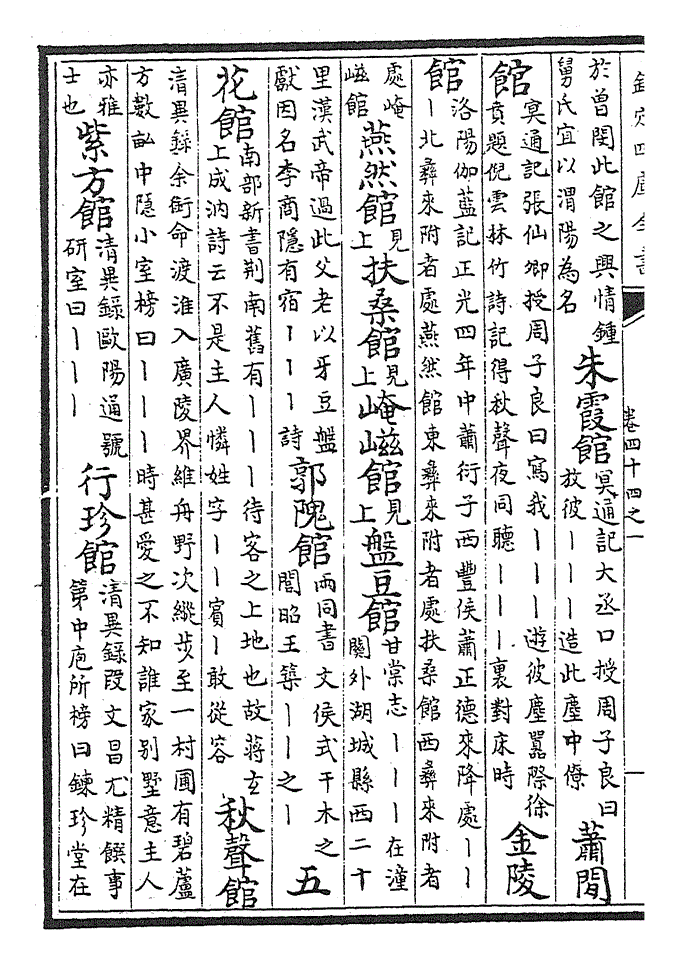 欽定四庫全書
卷四十四之一
於曽閏此館之興情鍾
舅氏宜以渭陽為名
朱霞館
冥通記大丞口授周子良曰
放彼丨丨丨造此塵中僚
蕭閒
館
冥通記張仙卿授周子良曰寫我丨丨丨遊彼塵囂際徐
賁題倪雲林竹詩記得秋聲夜同聽丨丨丨裏對床時
金陵
館
洛陽伽藍記正光四年中蕭衍子西豐侯蕭正德來降處丨丨
丨北彝來附者處燕然館東彝來附者處扶桑館西彝來附者
處崦
嵫館
燕然館
見
上
扶桑館
見
上
崦嵫館
見
上
盤豆館
甘棠志丨丨丨在潼
關外湖城縣西二十
里漢武帝過此父老以牙豆盤
獻因名李商隱有宿丨丨丨詩
郭隗館
兩同書文侯式干木之
閭昭王築丨丨之丨
五
花館
南部新書荆南舊有丨丨丨待客之上地也故蔣玄
上成汭詩云不是主人憐姓字丨丨賓丨敢從容
秋聲館
清異録余銜命渡淮入廣陵界維舟野次縱步至一村圃有碧蘆
方數畝中隱小室榜曰丨丨丨時甚愛之不知誰家别墅意主人
亦雅
士也
紫方館
清異録歐陽通號
研室曰丨丨丨
行珍館
清異録段文昌尤精饌事
第中庖所榜曰鍊珍堂在